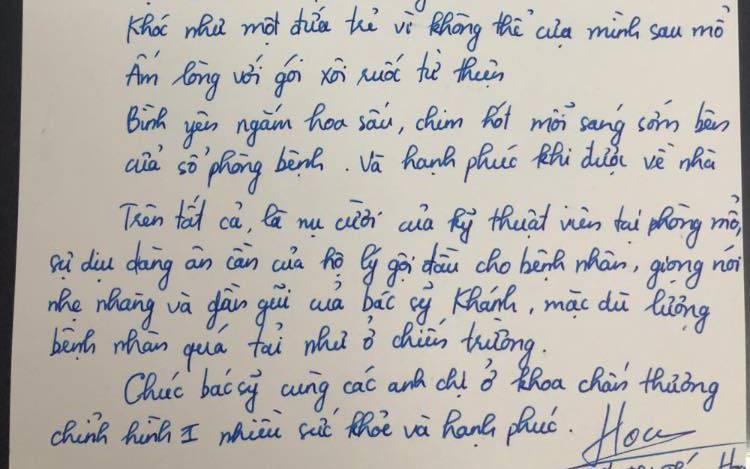 Khóc như một đứa trẻ vì không thể của mình sau mổ
Ấm lòng với gói xôi ruốc từ thiện
Bình yên ngắm hoa sấu, chim hót mỗi sáng sớm bên
cửa sổ phòng bệnh. Và hạnh phúc khi được về nhà
Trên tất cả, là nụ cười của kỹ thuật viên tại phòng mổ,
sự dịu dàng ân cần của hộ lý gội đầu cho bệnh nhân, giọng nói
nhẹ nhàng và gần gũi của bác sỹ Khánh, mặc dù lượng
bệnh nhân quá tải như ở chiến trường.
Chúc bác sỹ cùng các anh chị ở khoa chấn thương
chỉnh hình I nhiều sức khỏe và hạnh phúc.
Hoa